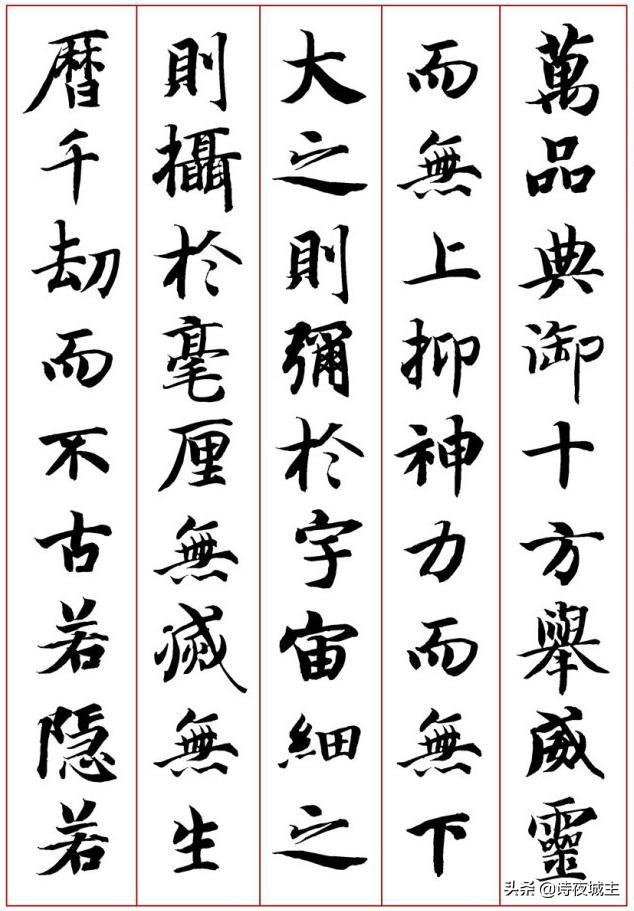 萬品典御十方舉威靈
而無上抑神力而無下
大之則彌於宇宙細之
則攝於毫厘無滅無生
曆千劫而不古若隱若
头条 @诗夜城主